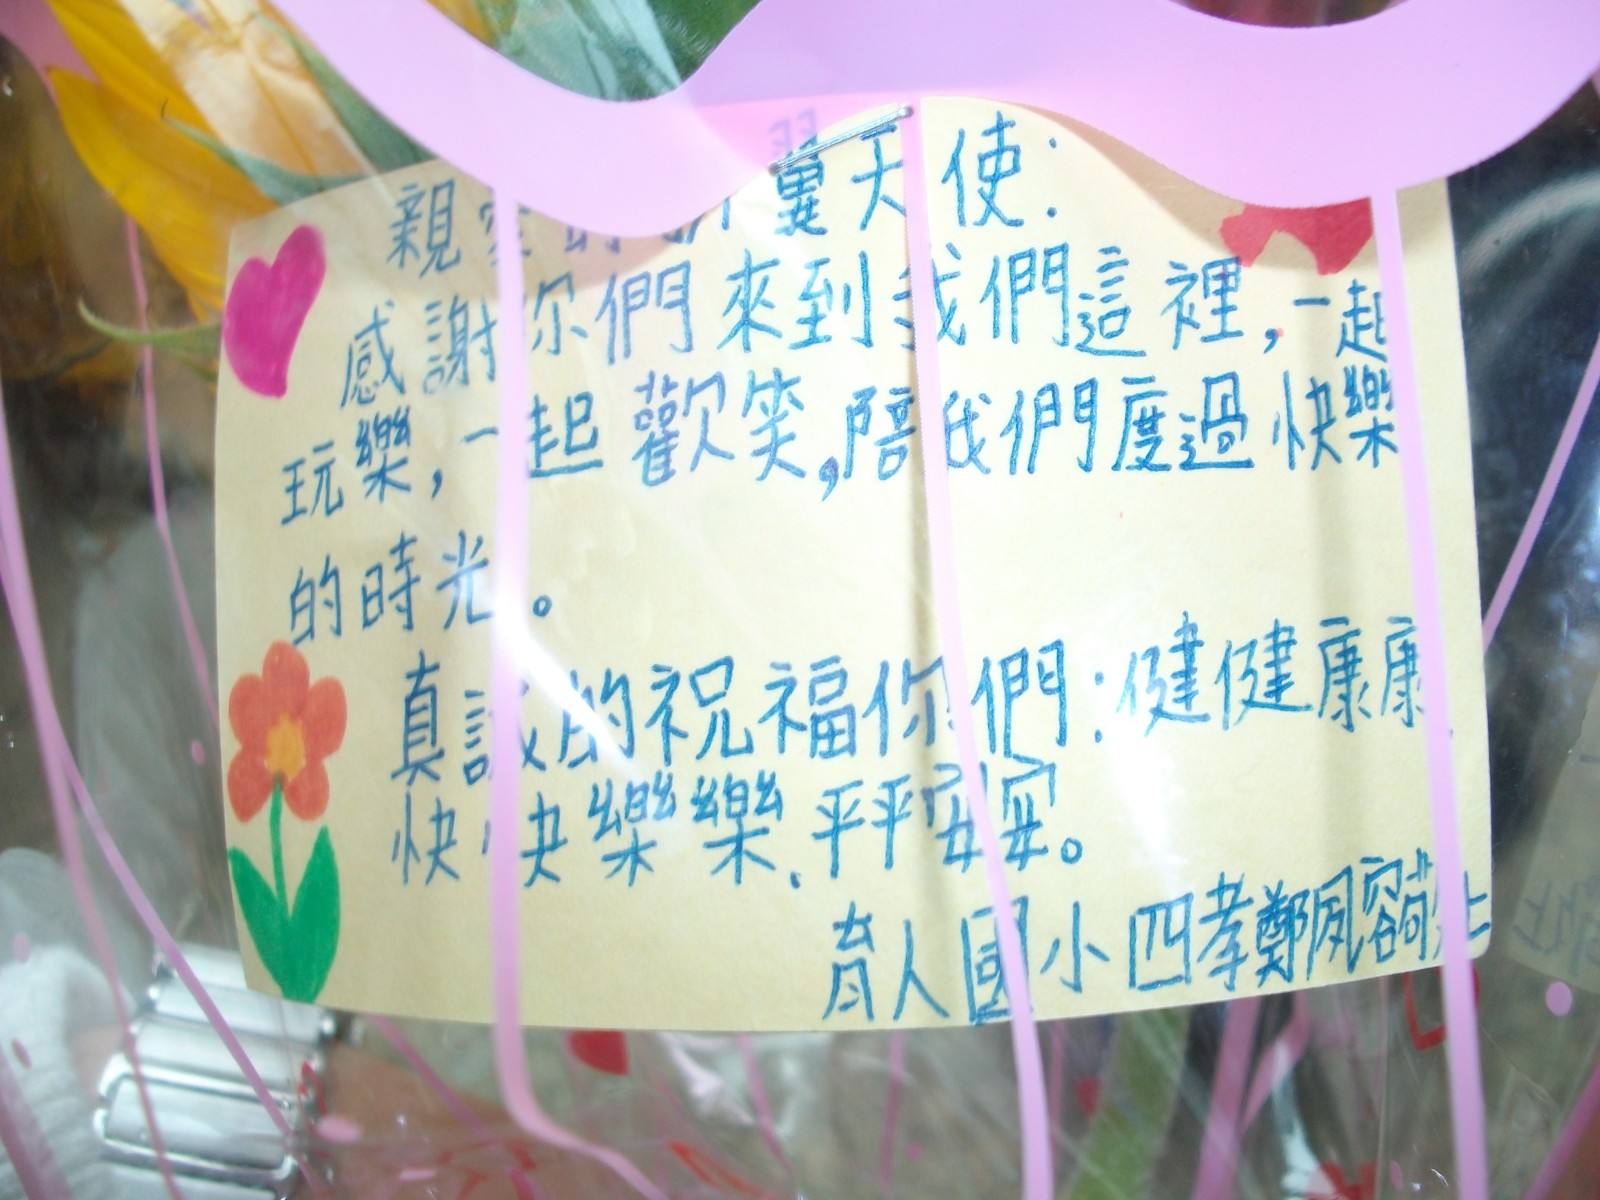 親愛的折翼天使:
感謝你們來到我們這裡,一起
玩樂,一起歡笑,陪我們度過快樂
的時光。
真誠的祝福你們:健健康康
快快樂樂、平平安安。
育人國小四孝鄭夙容敬上